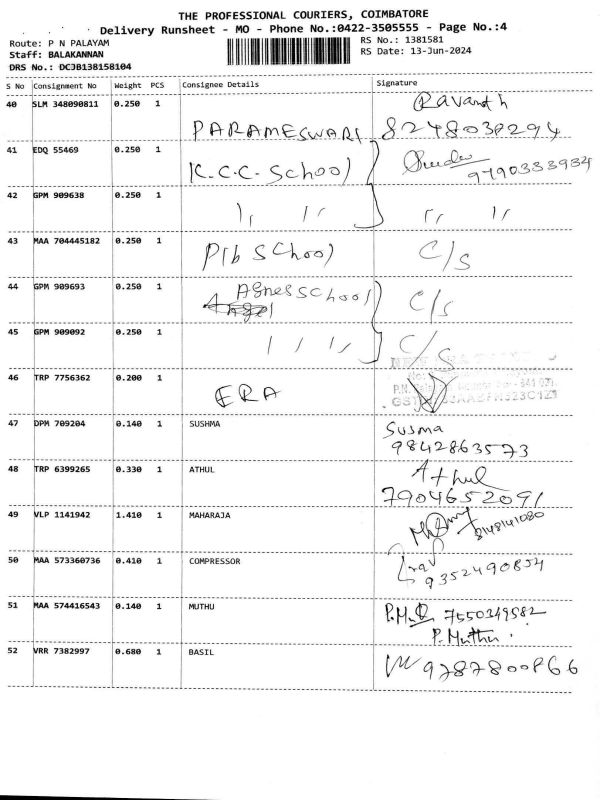 THE PROFESSIONAL COURIERS, COIMBATORE
Delivery Runsheet - MO - Phone No.:0422-3505555 - Page No.:4
Route: P N PALAYAM
RS No.: 1381581
Staff: BALAKANNAN
RS Date: 13-Jun-2024
DRS No.: DCJB138158104
S No Consignment No Weight PCS Consignee Details Signature
40 SLM 348090811 0.250 1 PARAMESWARI Ravanth
8248030294
41 EDQ 55469 0.250 1 K.C.C-School
9790333934
42 GPM 909638 0.250 1 ,, ,, ,, ,,
43 MAA 704445182 0.250 1 School C/S
44 GPM 909693 0.250 1 Agnes School C/s
45 GPM 909092 0.250 1 ,, ,, C/S
46 TRP 7756362 0.200 1 ERA
47 DPM 709204 0.140 1 SUSHMA Susma
9842863573
48 TRP 6399265 0.330 1 ATHUL Athul
7904652091
49 VLP 1141942 1.410 1 MAHARAJA 8148141080
50 MAA 573360736 0.410 1 COMPRESSOR
9352490854
51 MAA 574416543 0.140 1 MUTHU 7550349582
P. Muthu.
52 VRR 7382997 0.680 1 BASIL